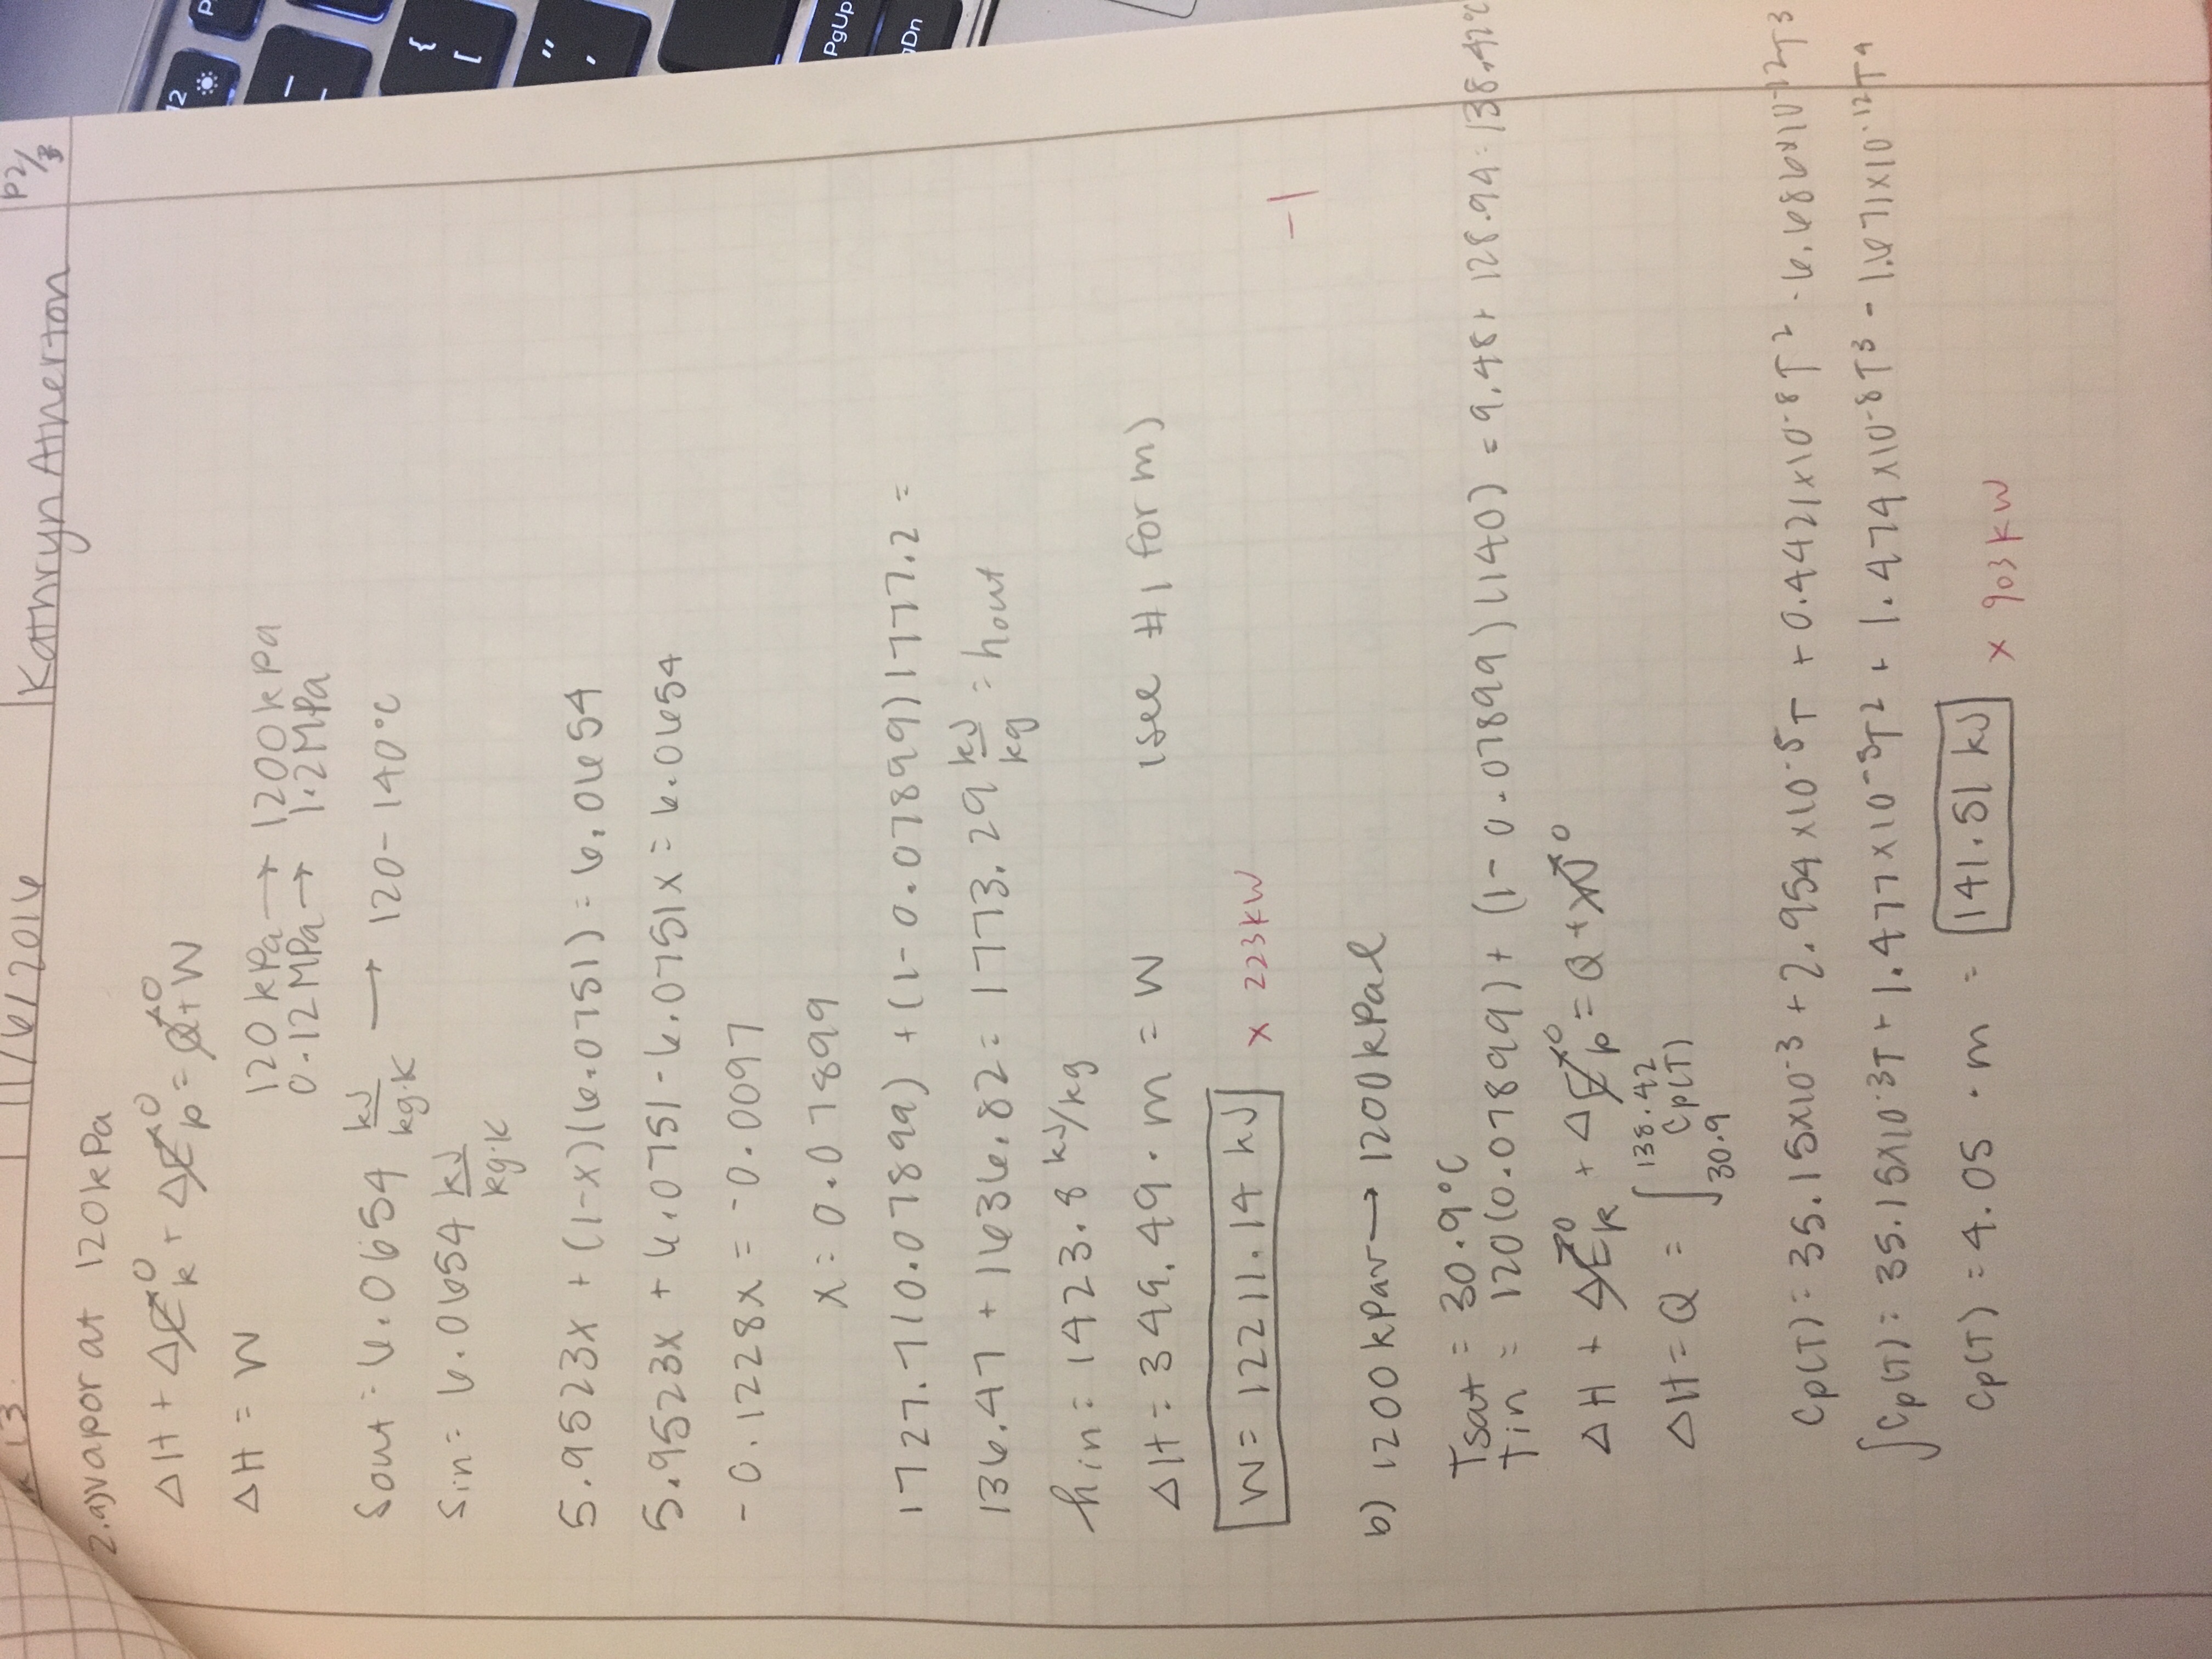 13 11/6/2016 Kathryn Atherton P2/3
2.a) vapor at 120 kPa
ΔH + ΔE_k^0 + ΔE_p^0 = Q^0 + W
ΔH = W
120 kPa → 1200 kPa
0.12 MPa → 1.2 MPa
Sout = 6.0654 kJ/kg·K → 120-140°C
Sin = 6.0654 kJ/kg·K
5.9523x + (1-x)(6.0751) = 6.0654
5.9523x + 6.0751 - 6.0751x = 6.0654
-0.1228x = -0.0097
x = 0.07899
1727.7(0.07899) + (1-0.07899)1777.2 =
136.47 + 1636.82 = 1773.29 kJ/kg = hout
hin = 1423.8 kJ/kg
ΔH = 349.49 · m = W (see #1 for m)
W = 12211.14 kJ × 223kW
-1
b) 1200 kPa v → 1200 kPa l
Tsat = 30.9°C
Tin = 120(0.07899) + (1-0.07899)(140) = 9.48 + 128.94 = 138.42°C
ΔH + ΔE_k^0 + ΔE_p^0 = Q + W^0
ΔH = Q = ∫_30.9^138.42 Cp(T)
Cp(T) = 35.15×10^-3 + 2.954×10^-5T + 0.4421×10^-8T^2 - 6.686×10^-12T^3
∫Cp(T) = 35.15×10^-3T + 1.477×10^-5T^2 + 1.474×10^-8T^3 - 1.671×10^-12T^4
Cp(T) = 4.05 · m = 141.51 kJ × 903kW
12
P
{
[
"
,
PgUp
gDn